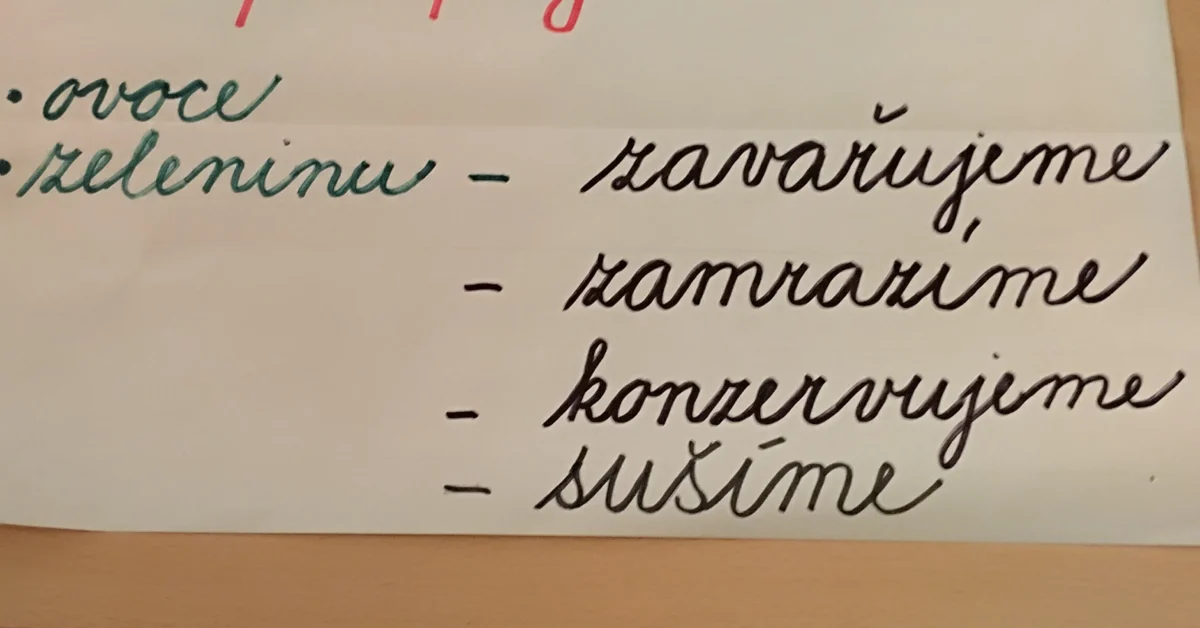 • ovoce
• zeleninu - zavařujeme
- zamrazíme
- konzervujeme
- sušíme